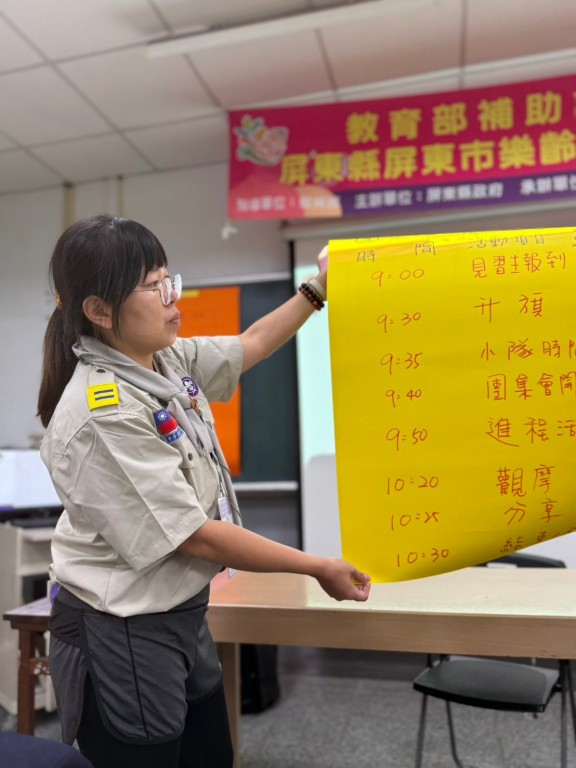 教育部補助
屏東縣屏東市樂齡
主辦單位:屏東縣政府 承辦單位
時間 活動項目
9:00 見習生報到
9:30 升旗
9:35 小隊時間
9:40 團集會開
9:50 進程活
10:20 觀摩
10:25 分享
10:30